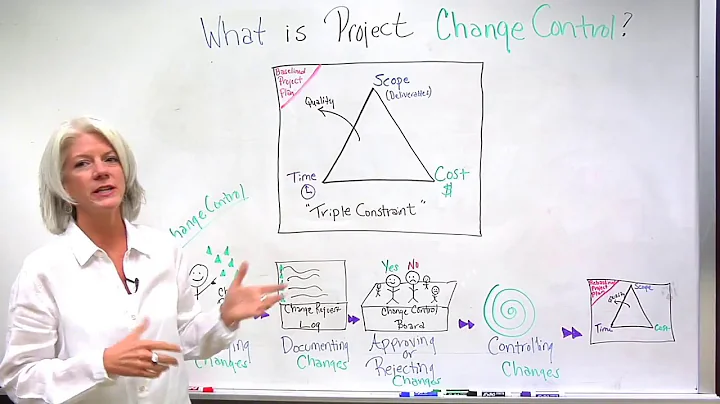 What is Project Change Control?
Baselined
Project
Plan
Scope
(Deliverables)
Quality
Time
Cost
$
"Triple Constraint"
hange Control
Ch
Changes
Change Request
Log
Documenting
Changes
Yes No
Change Control
Board
Approving
or
Rejecting
Changes
Controlling
Changes
Rebaselined
Project
Plan
Scope
Quality
Time
Cost